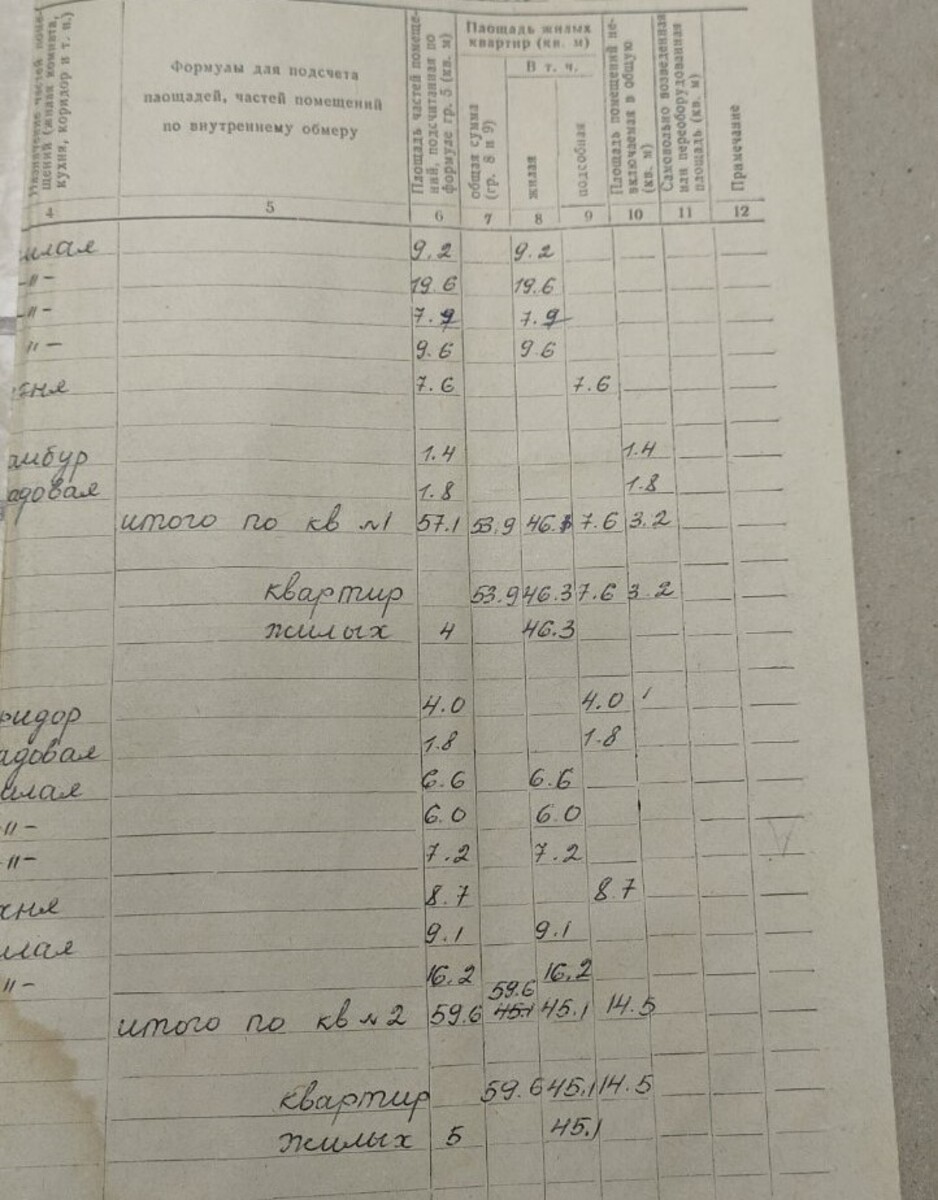 Назначение частей поме-
щений (жилая комната,
кухня, коридор и т. п.)
Формулы для подсчета
площадей, частей помещений
по внутреннему обмеру
Площадь частей помеще-
ний, подсчитанная по
формуле гр. 5 (кв. м)
Площадь жилых
квартир (кв. м)
общая сумма
(гр. 8 и 9)
В т. ч.
жилая
подсобная
Площадь помещений не-
включаемая в общую
(кв. м)
Самовольно возведенная
или переоборудованная
площадь (кв. м)
Примечание
4 5 6 7 8 9 10 11 12
илая 9.2 9.2
-"- 19.6 19.6
-"- 7.9 7.9
"- 9.6 9.6
хня 7.6 7.6
амбур 1.4 1.4
адовая 1.8 1.8
итого по кв №1 57.1 53.9 46.3 7.6 3.2
квартир 53.9 46.3 7.6 3.2
жилых 4 46.3
ридор 4.0 4.0
адовая 1.8 1.8
илая 6.6 6.6
"- 6.0 6.0
-"- 7.2 7.2
хня 8.7 8.7
илая 9.1 9.1
"- 16.2 16.2
59.6
итого по кв №2 59.6 45.1 45.1 14.5
квартир 59.6 45.1 14.5
жилых 5 45.1